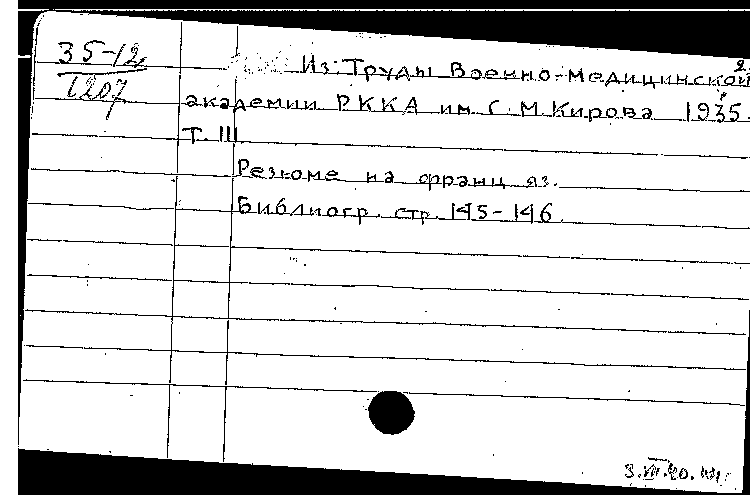 2.
35-12
1207
Из: Труды Военно-медицинской
академии РККА им. С.М.Кирова 1935.
Т. III
Резюме на франц яз.
Библиогр. стр. 145-146.